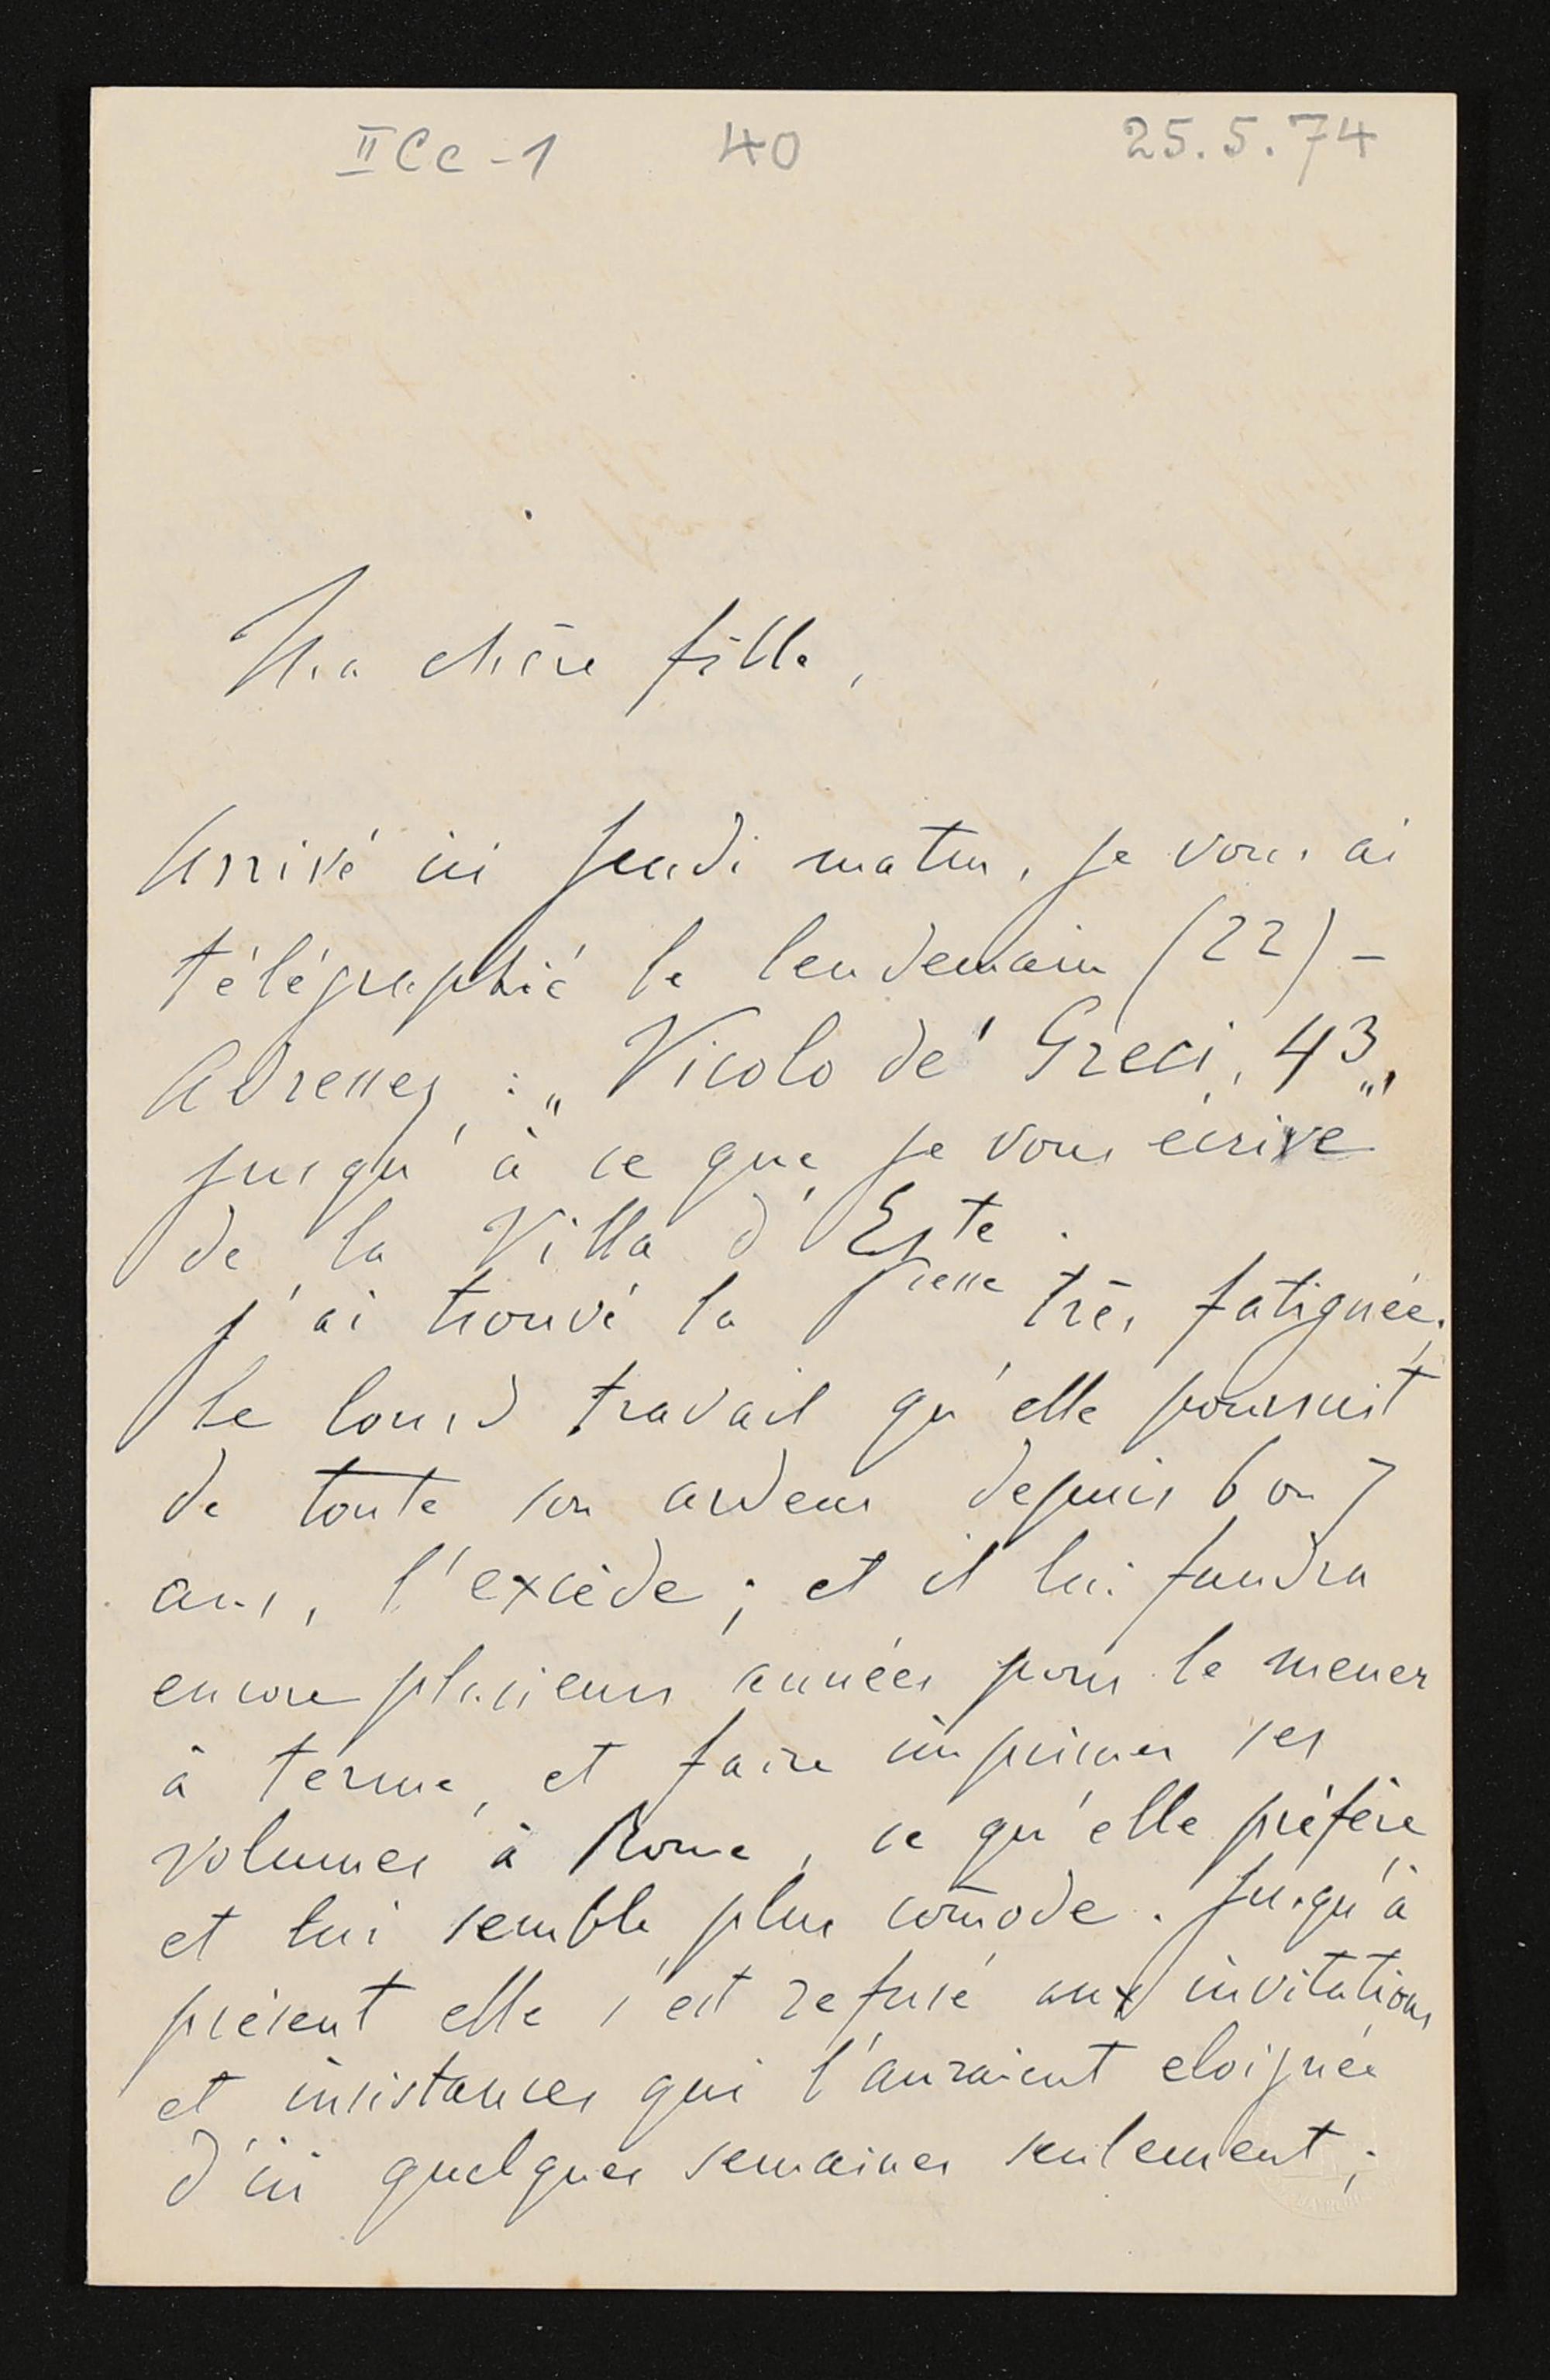 II Cc-1 40 25.5.74
Ma chère fille,
Arrivé ici Jeudi matin, je vous ai
télégraphié le lendemain (22) –
Adressez : „Vicolo de' Greci, 43„,
jusqu'à ce que je vous écrive
de la Villa d'Este.
J'ai trouvé la Pcesse très fatiguée.
Le lourd travail qu'elle poursuit
de toute son ardeur depuis 6 ou 7
ans, l'excède ; et il lui faudra
encore plusieurs années pour le mener
à terme, et faire imprimer ses
volumes à Rome, ce qu'elle préfère
et lui semble plus com̄ode. Jusqu'à
présent elle s'est refusé aux invitations
et insistances qui l'auraient eloignée
d'ici quelques semaines seulement ;